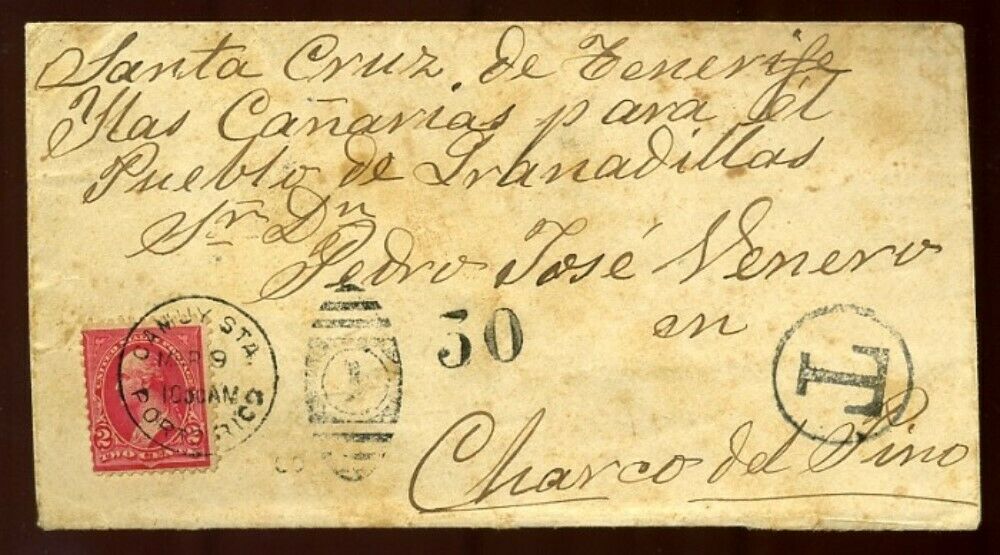 Santa Cruz de Tenerife
Yslas Cañarias para él
Pueblo de Granadillas
Sr. Dn
Pedro José Venero
en
Charco del Pino
50
T
CAMUY STA.
MAR 9
1000AM
PORTO RICO
2 2
TWO CENTS